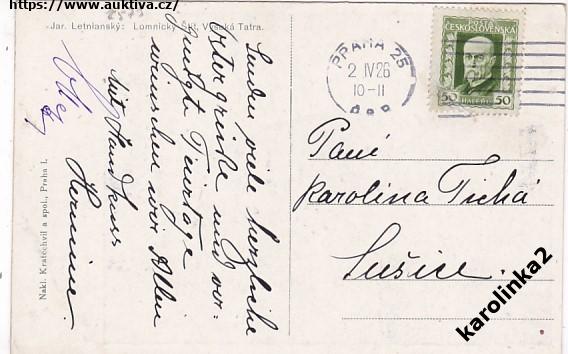 https://www.auktiva.cz/
Jar. Letnianský: Lomnický Štít, Vysoká Tatra.
Senden viele herzliche
Ostergrüsse und ver-
gnügte Feiertage
wünschen wir Allen
Mit Handkuss
Hermine.
Nakl. Kratochvíl a spol., Praha I.
PRAHA 25
2 IV 26
10-11
POŠTA
ČESKOSLOVENSKÁ
50 HALÉŘŮ 50
Paní
Karolina Tichá
Sušice.
karolinka2